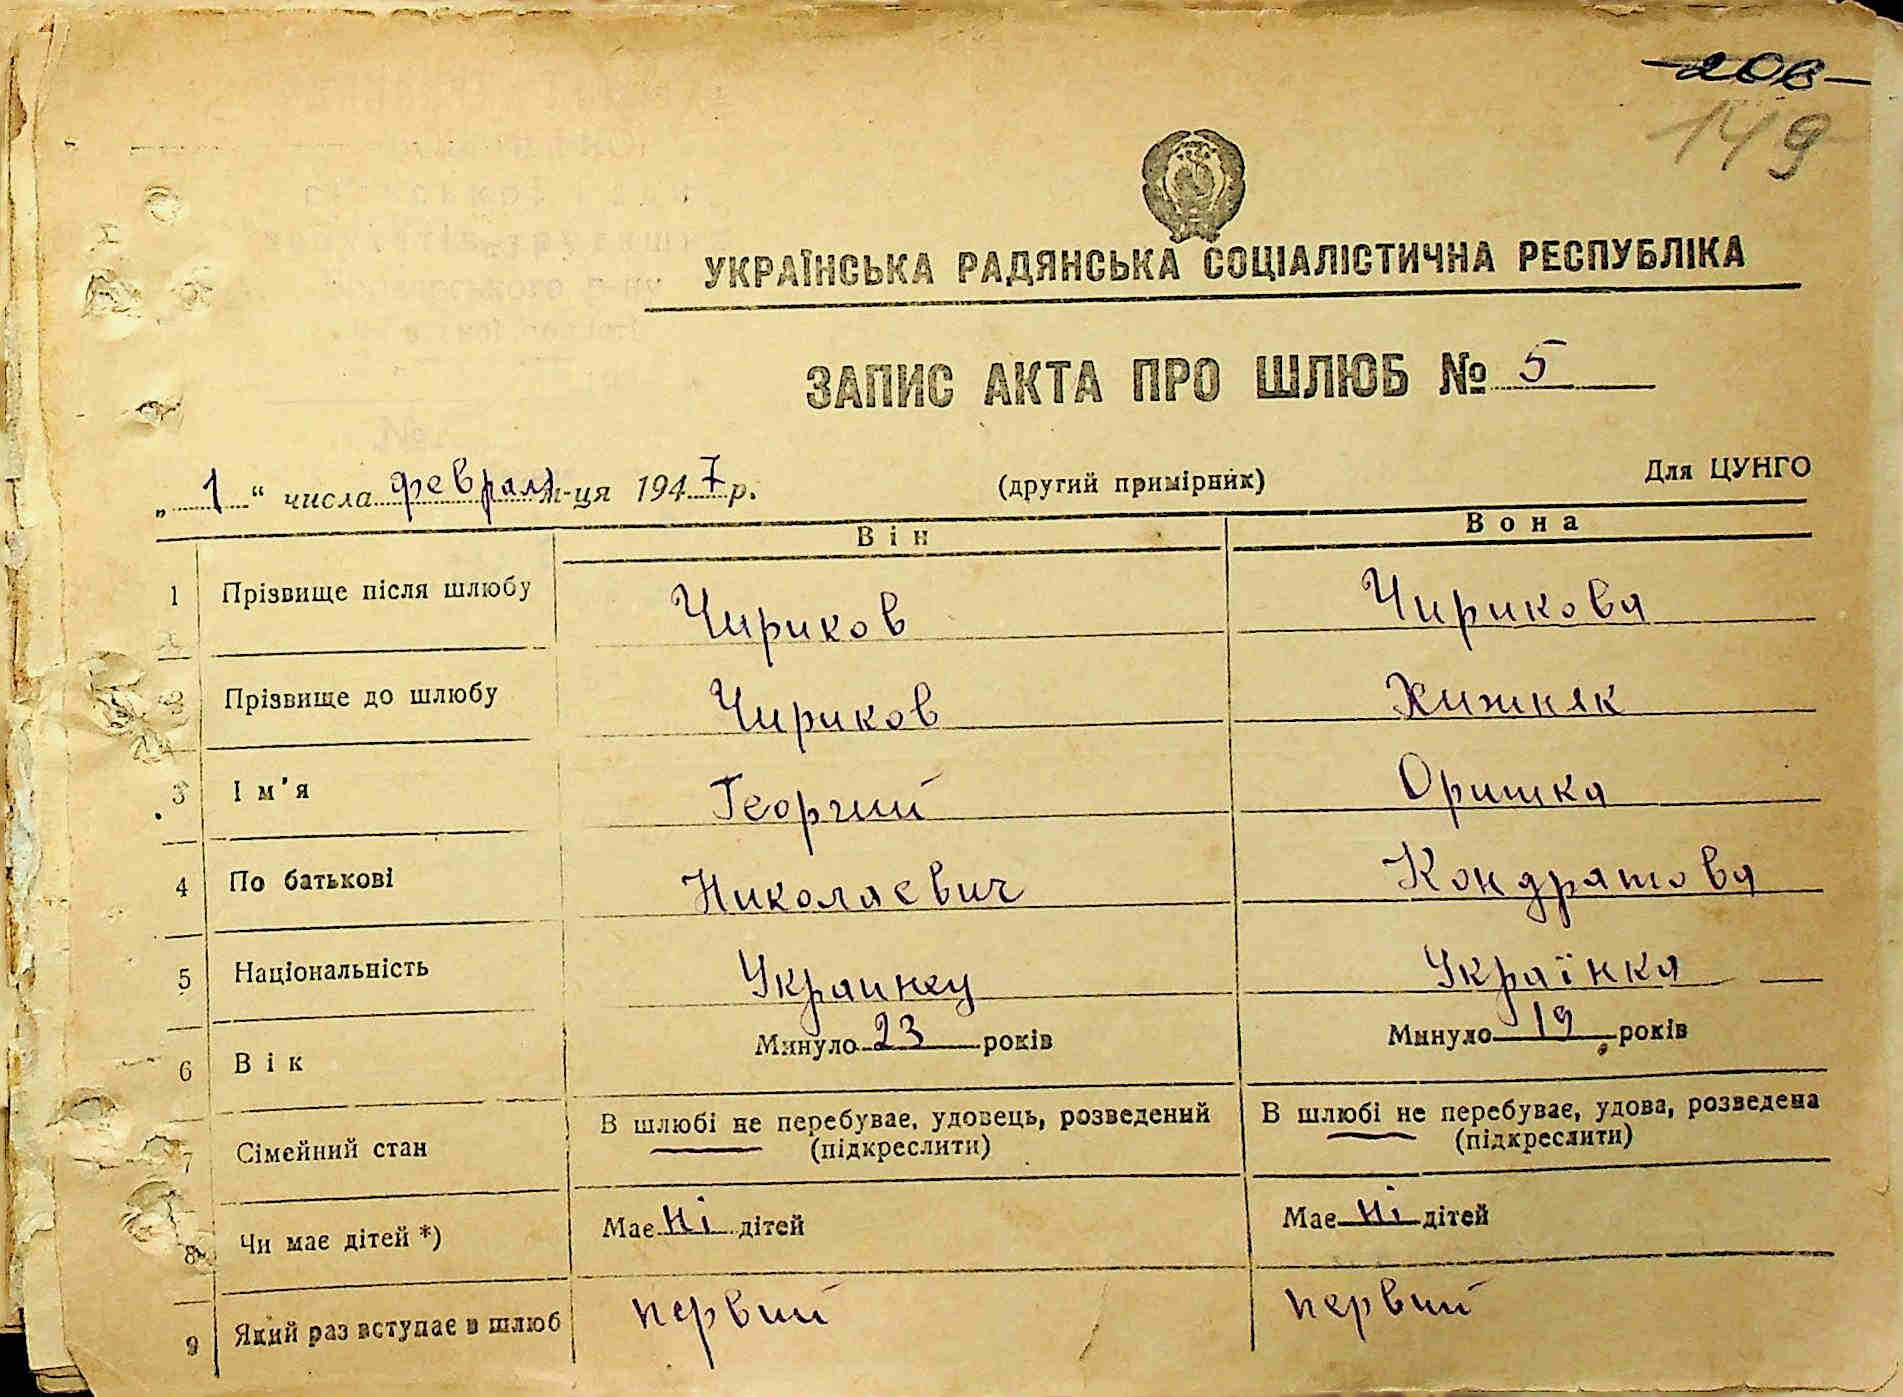 206
149
УКРАЇНСЬКА РАДЯНСЬКА СОЦІАЛІСТИЧНА РЕСПУБЛІКА
ЗАПИС АКТА ПРО ШЛЮБ № 5
„ 1 “ числа февраля м-ця 1947 р. (другий примірник) Для ЦУНГО
Він Вона
1 Прізвище після шлюбу Чириков Чирикова
2 Прізвище до шлюбу Чириков Хижняк
3 Ім'я Георгий Оришка
4 По батькові Николаевич Кондратова
5 Національність Украинец Українка
6 Вік Минуло 23 років Минуло 19 років
7 Сімейний стан В шлюбі не перебуває, удовець, розведений (підкреслити) В шлюбі не перебуває, удова, розведена (підкреслити)
8 Чи має дітей *) Має ні дітей Має ні дітей
9 Який раз вступає в шлюб первий первий